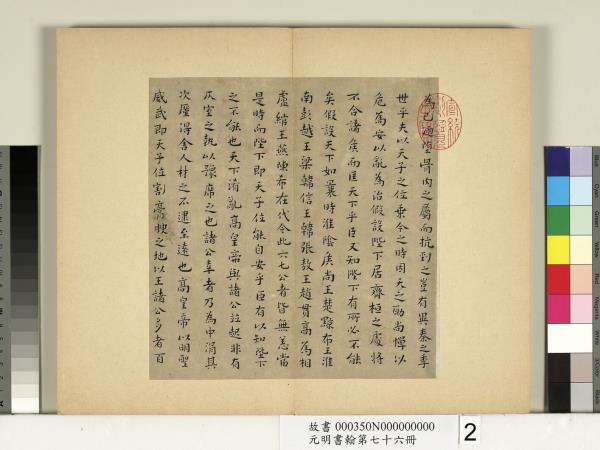 為已迺墮骨肉之屬而抗剄之豈有異秦之季
世乎夫以天子之位乗今之時因天之助尚憚以
危為安以亂為治假設陛下居齊桓之處將
不合諸侯而匡天下乎臣又知陛下有所必不能
矣假設天下如曩時淮陰侯尚王楚黥布王淮
南彭越王梁韓信王韓張敖王趙貫高為相
盧綰王燕陳希在代令此六七公者皆無恙當
是時而陛下即天子位能自安乎臣有以知陛下
之不能也天下淆亂高皇帝與諸公並起非有
仄室之埶以豫席之也諸公幸者乃為中涓其
次廑得舍人材之不逮至遠也高皇帝以明聖
威武即天子位割膏腴之地以王諸公多者百
故書 000350N000000000
元明書翰第七十六冊
2